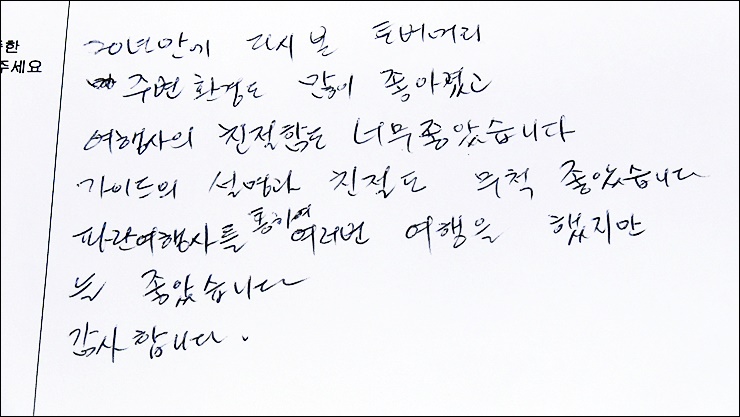 한
주세요
20년만에 다시 본 토버머리
주변 환경도 많이 좋아졌고
여행사의 친절함도 너무좋았습니다
가이드의 설명과 친절도 무척 좋았습니다
파란여행사를 통하여 여러번 여행을 했지만
늘 좋았습니다
감사합니다.